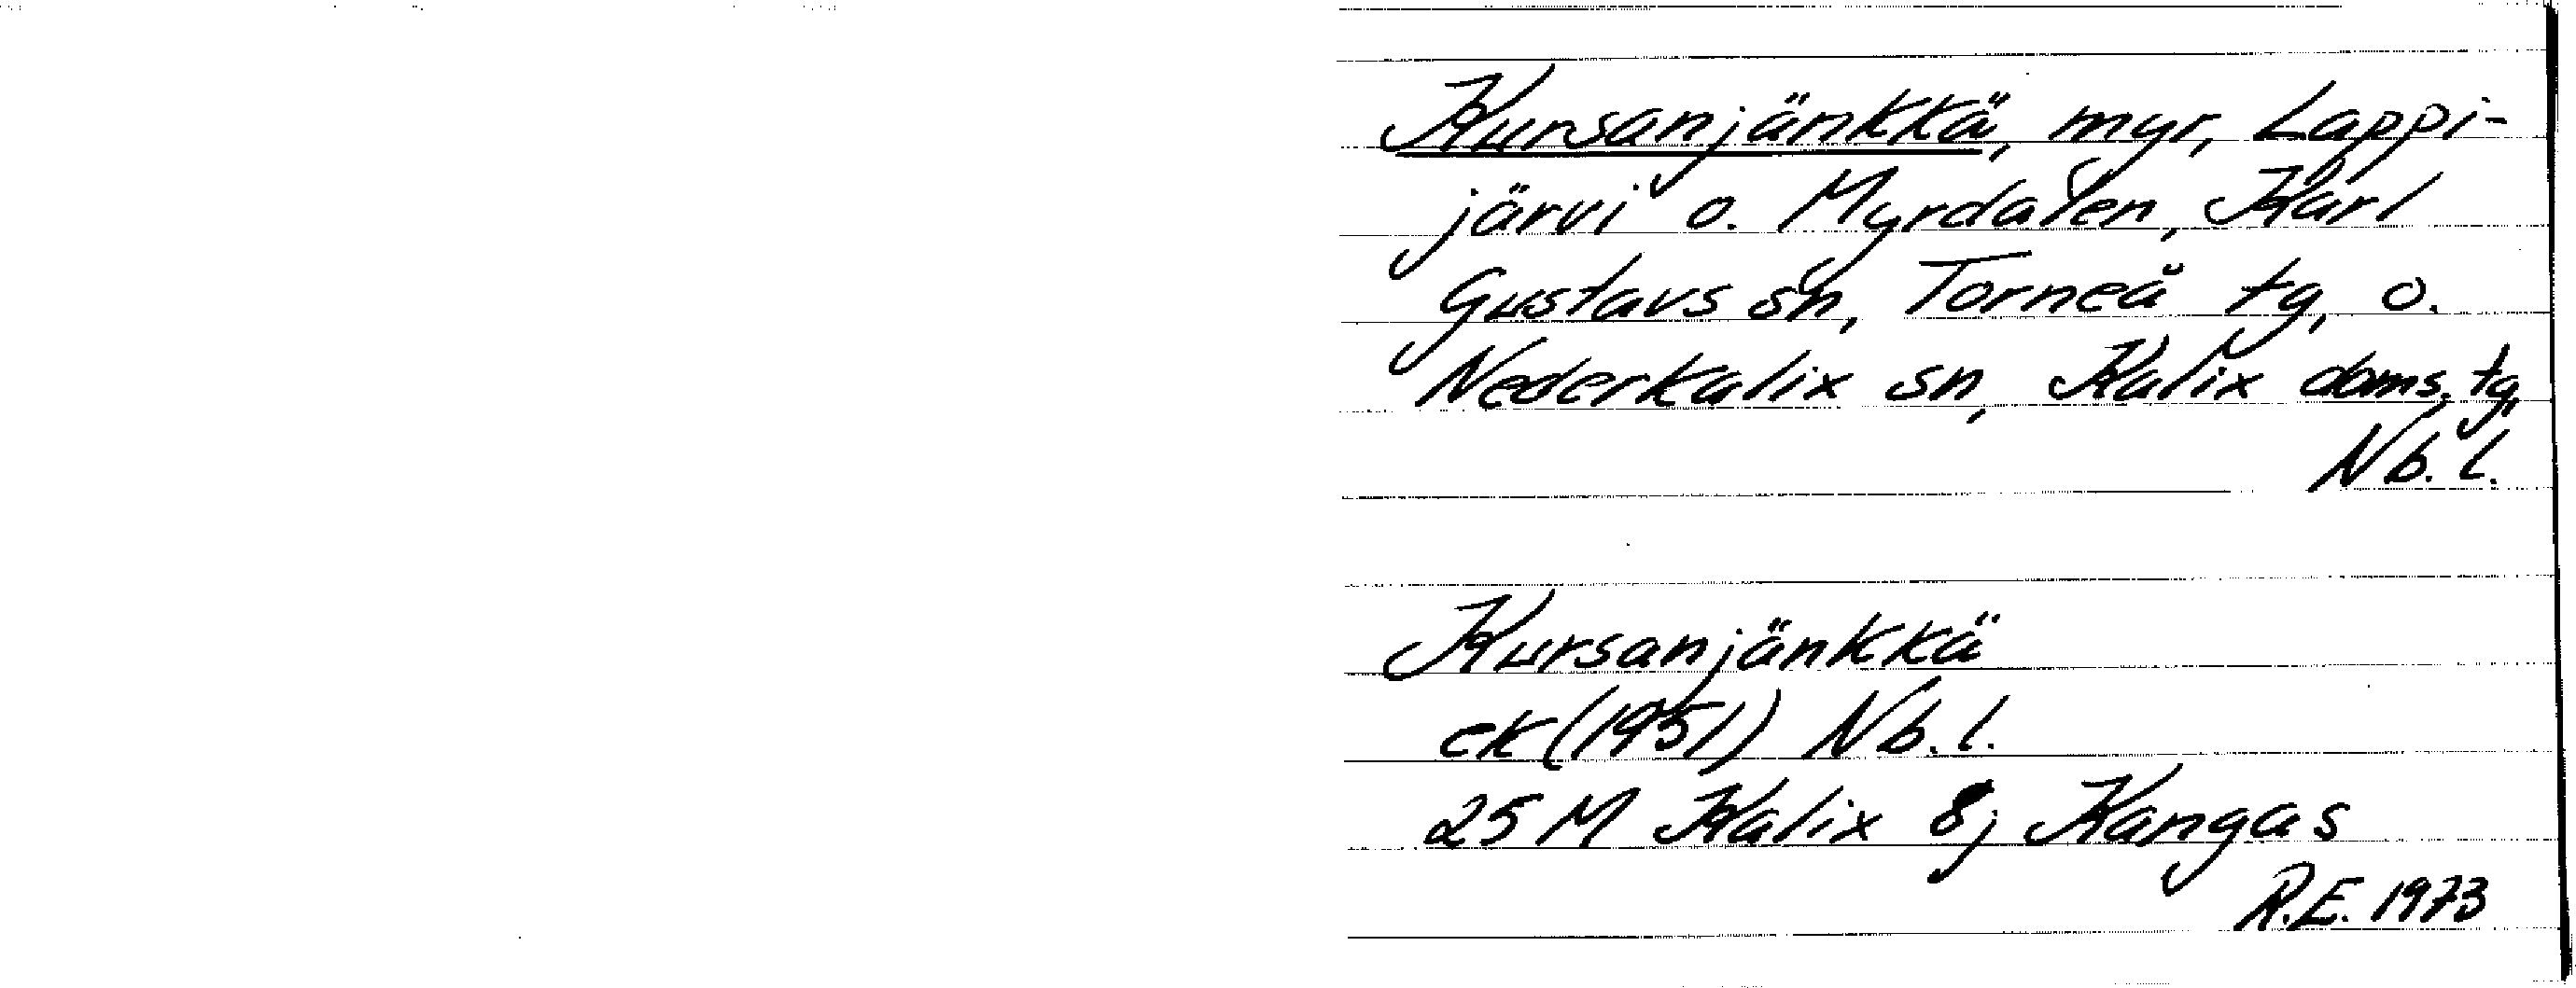 Kursanjänkkä, myr, Lappi-
järvi o. Myrdalen, Karl
Gustavs sn, Torneå tg, o.
Nederkalix sn, Kalix doms. tg,
Nb. l.
Kursanjänkkä
ek (1951) Nb. l.
25 M Kalix 8j Kangas
R.E. 1973